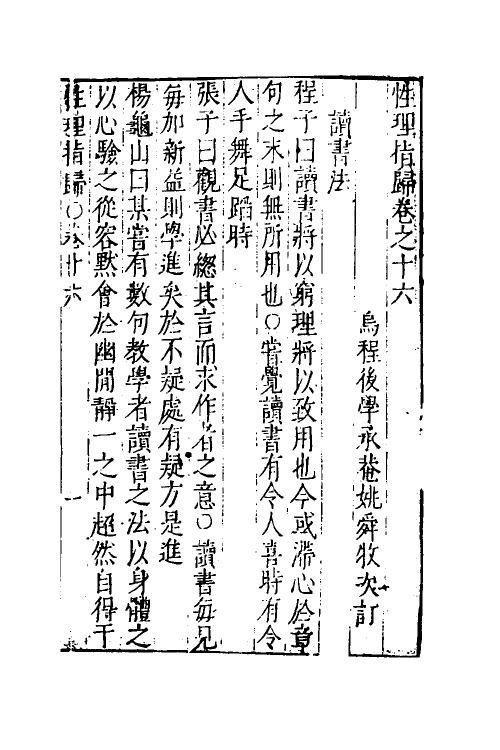 性理指歸卷之十六
烏程後學承菴姚舜牧次訂
讀書法
程子曰讀書將以窮理將以致用也今或滯心於章
句之末則無所用也○嘗覺讀書有令人喜時有令
人手舞足蹈時
張子曰觀書必總其言而求作者之意○讀書每見
每加新益則學進矣於不疑處有疑方是進
楊龜山曰某嘗有數句教學者讀書之法以身體之
以心驗之從容默會於幽閒靜一之中超然自得于
性理指歸○卷十六
一